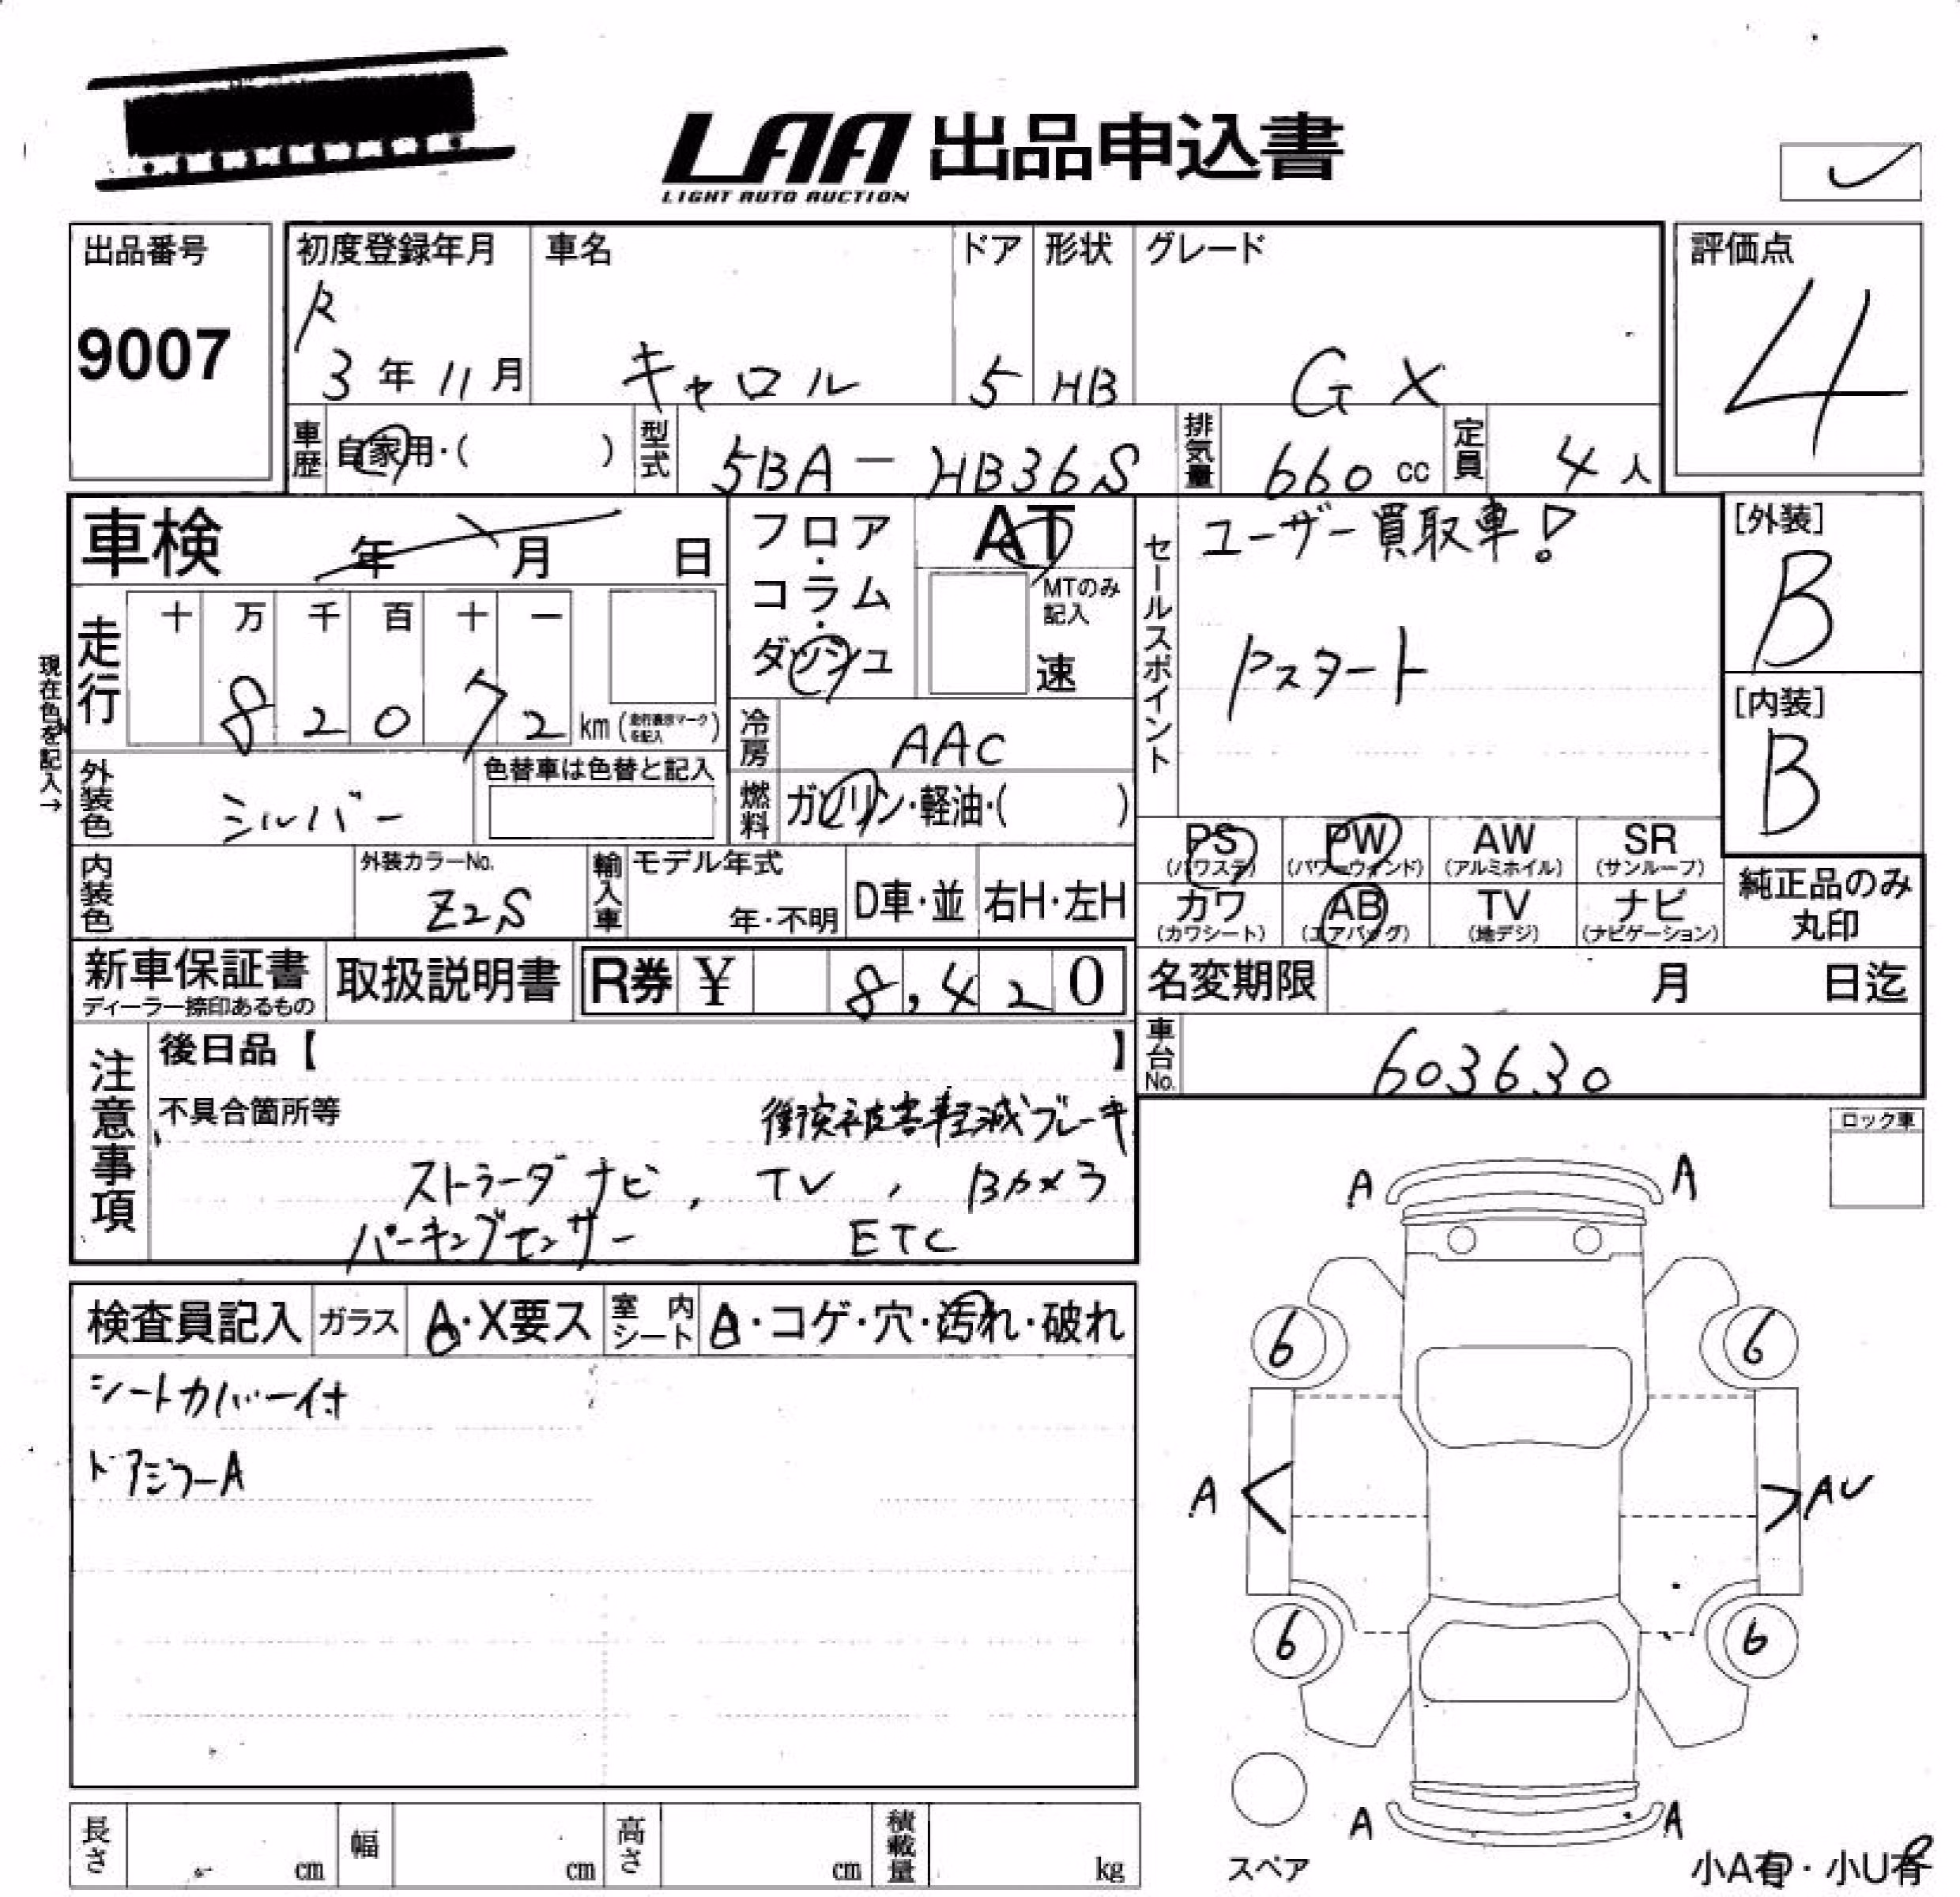 LAA 出品申込書
LIGHT AUTO AUCTION
出品番号
9007
初度登録年月
R
3年11月
車名
キャロル
ドア
5
形状
HB
グレード
GX
評価点
4
車歴
自家用・( )
型式
5BA-HB36S
排気量
660 cc
定員
4人
車検 年 月 日
フロア・コラム・ダッシュ
AT
MTのみ記入
速
セールスポイント
ユーザー買取車!
Pスタート
[外装]
B
[内装]
B
現在色を記入→
走行
十 万 千 百 十 一
8 2 0 7 2 km (走行表示マークを記入)
冷房
AAC
外装色
シルバー
色替車は色替と記入
燃料
ガソリン・軽油・( )
PS (パワステ)
PW (パワーウィンド)
AW (アルミホイル)
SR (サンルーフ)
カワ (カワシート)
AB (エアバッグ)
TV (地デジ)
ナビ (ナビゲーション)
純正品のみ
丸印
内装色
外装カラーNo.
Z2S
輸入車
モデル年式
年・不明
D車・並
右H・左H
新車保証書
ディーラー捺印あるもの
取扱説明書
R券 ¥ 8,420
名変期限 月 日迄
車台No.
603630
注意事項
後日品【 】
不具合箇所等
衝突被害軽減ブレーキ
ストラーダナビ, TV, Bカメラ
パーキングセンサー ETC
ロック車
検査員記入
ガラス
A・X要ス
室内シート
A・コゲ・穴・汚れ・破れ
シートカバー付
ドアミラーA
A A
6 6
A AU
6 6
A A
スペア
小A有・小U有
長さ cm
幅 cm
高さ cm
積載量 kg